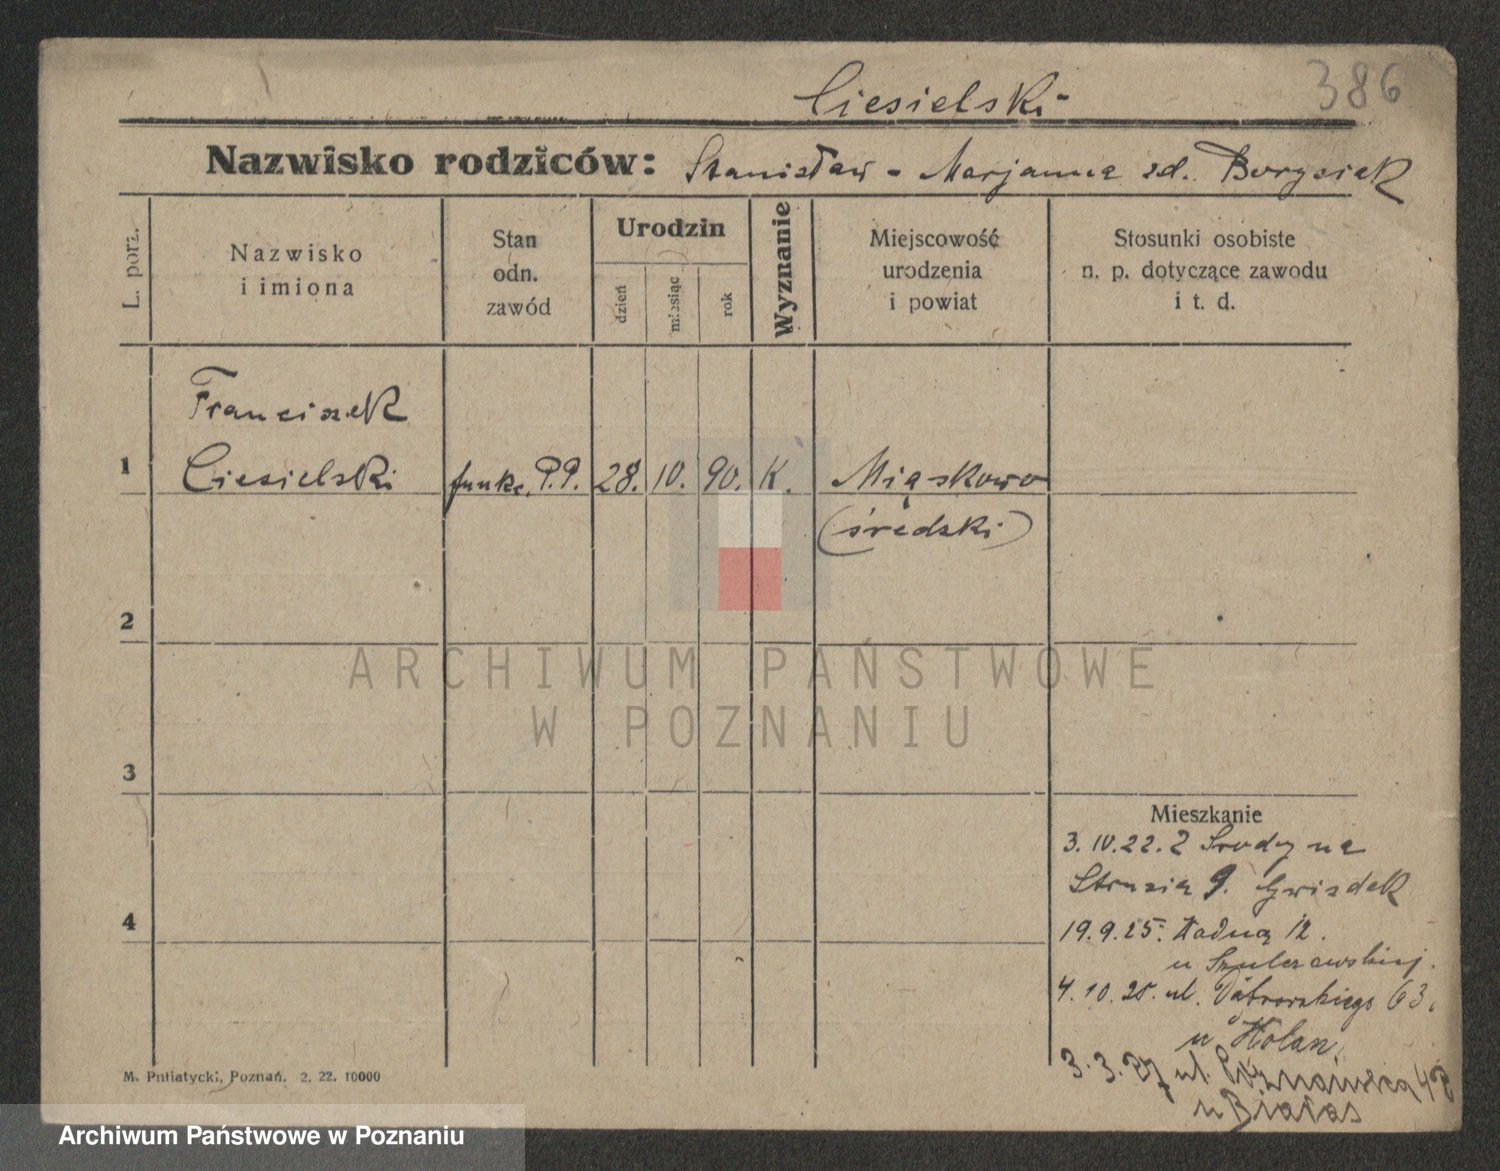 386
Ciesielski
Nazwisko rodziców: Stanisław - Marjanna zd. Borysiak
L. porz.
Nazwisko
i imiona
Stan
odn.
zawód
Urodzin
dzień
miesiąc
rok
Wyznanie
Miejscowość
urodzenia
i powiat
Stosunki osobiste
n. p. dotyczące zawodu
i t. d.
Franciszek
1 Ciesielski funkc. P.P. 28. 10. 90. K. Miąskowo
(średzki)
2
ARCHIWUM PAŃSTWOWE
W POZNANIU
3
Mieszkanie
3.10.22. z Środy na
Strusia 9. Gwizdek
4
19.9.25. 12.
u
4.10.25. ul. 63.
u Holan.
3.3.27 ul. Poznańska 42
u Białas
M. Putiatycki, Poznań. 2. 22. 10000
Archiwum Państwowe w Poznaniu